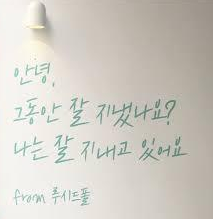 안녕,
그동안 잘 지냈나요?
나는 잘 지내고 있어요
from 루시드폴